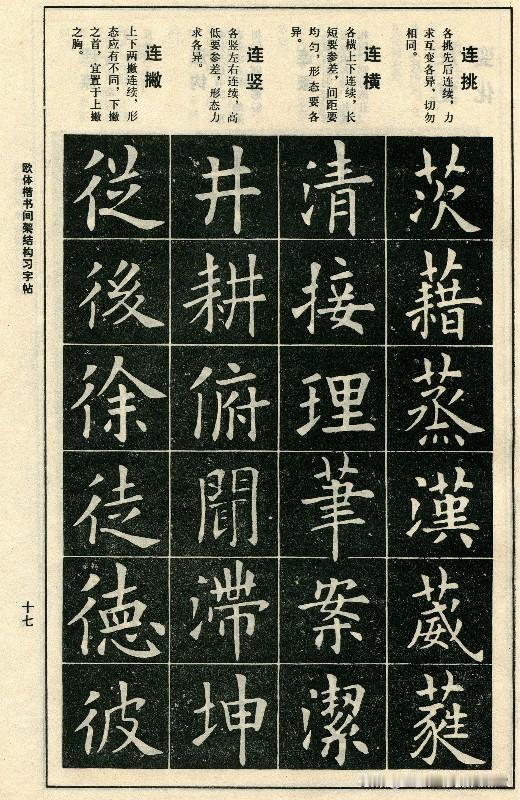 连挑
各挑先后连续，力
求互变各异，切勿
相同。
茨
藉
蒸
漢
葳
蕤
连横
各横上下连续，长
短要参差，间距要
均匀，形态要各
异。
清
接
理
筆
案
潔
连竖
各竖左右连续，高
低要参差，形态力
求各异。
井
耕
俯
聞
滞
坤
连撇
上下两撇连续，形
态应有不同，下撇
之首，宜置于上撇
之胸。
従
後
徐
徒
德
彼
欧体楷书间架结构习字帖
十七